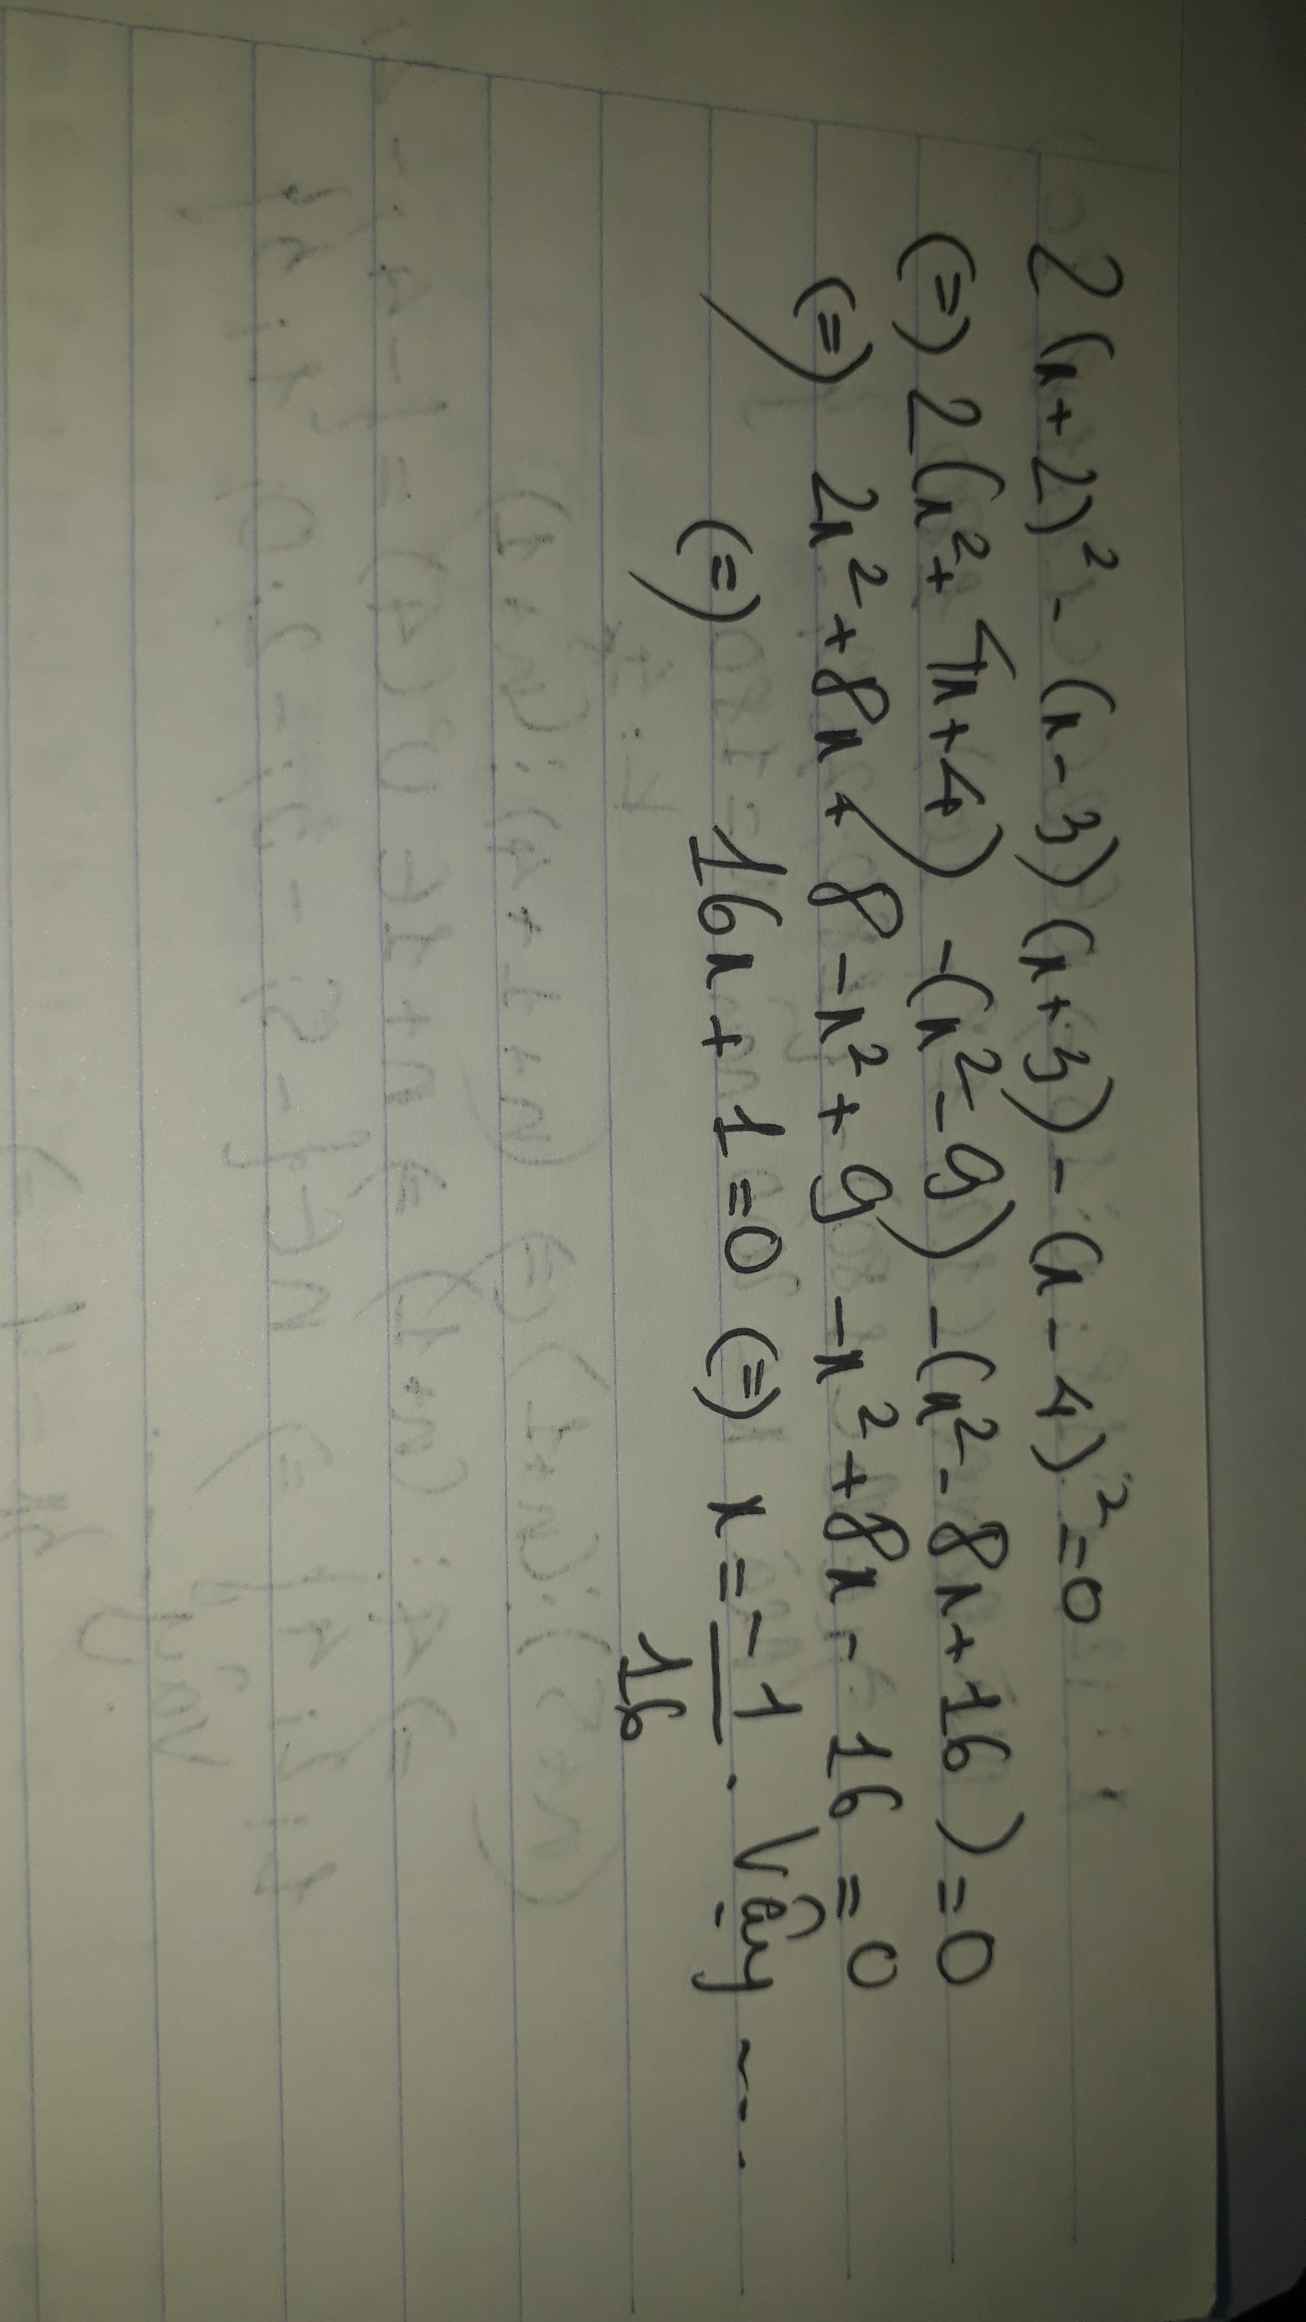 2(x+2)² - (x-3)(x+3) - (x-4)² = 0
(=) 2(x² + 4x + 4) - (x² - 9) - (x² - 8x + 16) = 0
(=) 2x² + 8x + 8 - x² + 9 - x² + 8x - 16 = 0
(=) 16x + 1 = 0 (=) x = -1/16. Vậy ....